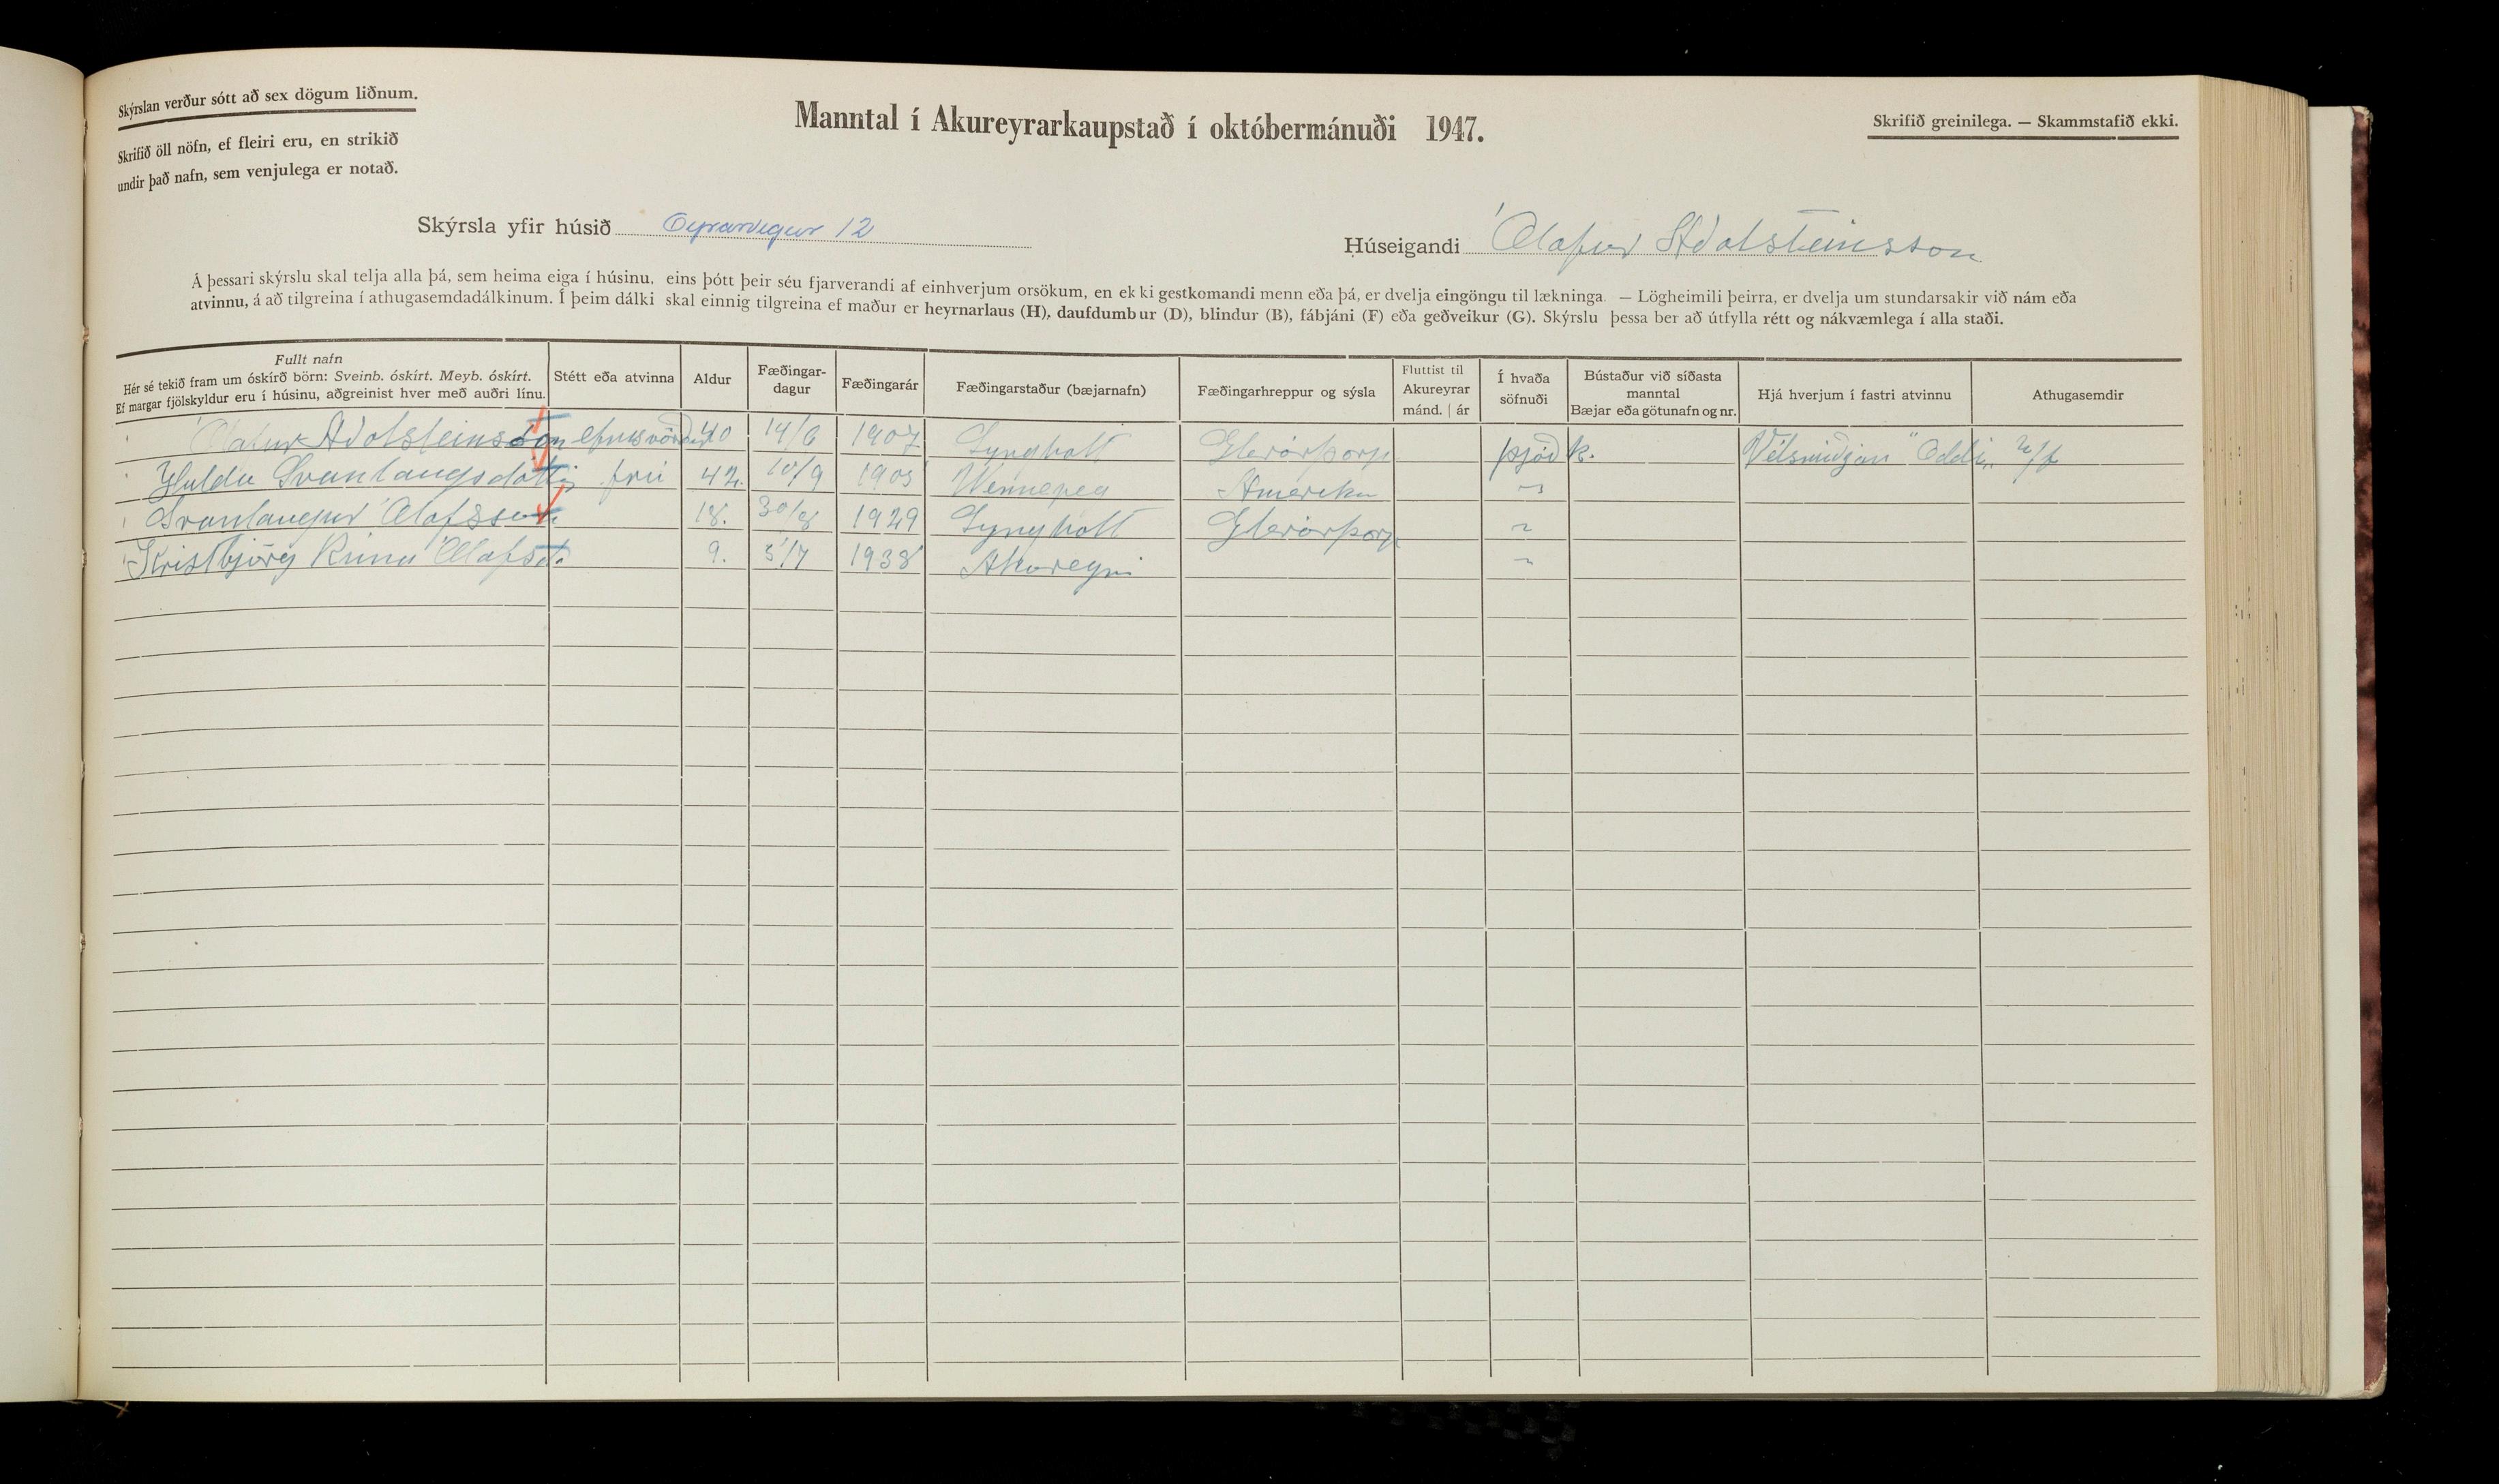 Skýrslan verður sótt að sex dögum liðnum.
Skrifið öll nöfn, ef fleiri eru, en strikið
undir það nafn, sem venjulega er notað.
Manntal í Akureyrarkaupstað í októbermánuði 1947.
Skrifið greinilega. — Skammstafið ekki.
Skýrsla yfir húsið Eyrarvegur 12
Húseigandi Ólafur Aðalsteinsson
Á þessari skýrslu skal telja alla þá, sem heima eiga í húsinu, eins þótt þeir séu fjarverandi af einhverjum orsökum, en ekki gestkomandi menn eða þá, er dvelja eingöngu til lækninga. — Lögheimili þeirra, er dvelja um stundarsakir við nám eða
atvinnu, á að tilgreina í athugasemdadálkinum. Í þeim dálki skal einnig tilgreina ef maður er heyrnarlaus (H), daufdumbur (D), blindur (B), fábjáni (F) eða geðveikur (G). Skýrslu þessa ber að útfylla rétt og nákvæmlega í alla staði.
Fullt nafn
Hér sé tekið fram um óskírð börn: Sveinb. óskírt. Meyb. óskírt.
Ef margar fjölskyldur eru í húsinu, aðgreinist hver með auðri línu.
Stétt eða atvinna
Aldur
Fæðingar-
dagur
Fæðingarár
Fæðingarstaður (bæjarnafn)
Fæðingarhreppur og sýsla
Fluttist til
Akureyrar
mánd. | ár
Í hvaða
söfnuði
Bústaður við síðasta
manntal
Bæjar eða götunafn og nr.
Hjá hverjum í fastri atvinnu
Athugasemdir
Ólafur Aðalsteinsson efnisvörður 40 14/6 1907 Lyngholt Glerárþorp þjóðk. Vélsmiðjan "Oddi" h/f
Hulda Svanlaugsdóttir frú 42. 10/9 1905 Winnepeg Ameríka
Svanlaugur Ólafsson 18. 30/8 1929 Lyngholt Glerárþorp
Kristbjörg Rúna Ólafsd. 9. 5/7 1938 Akureyri